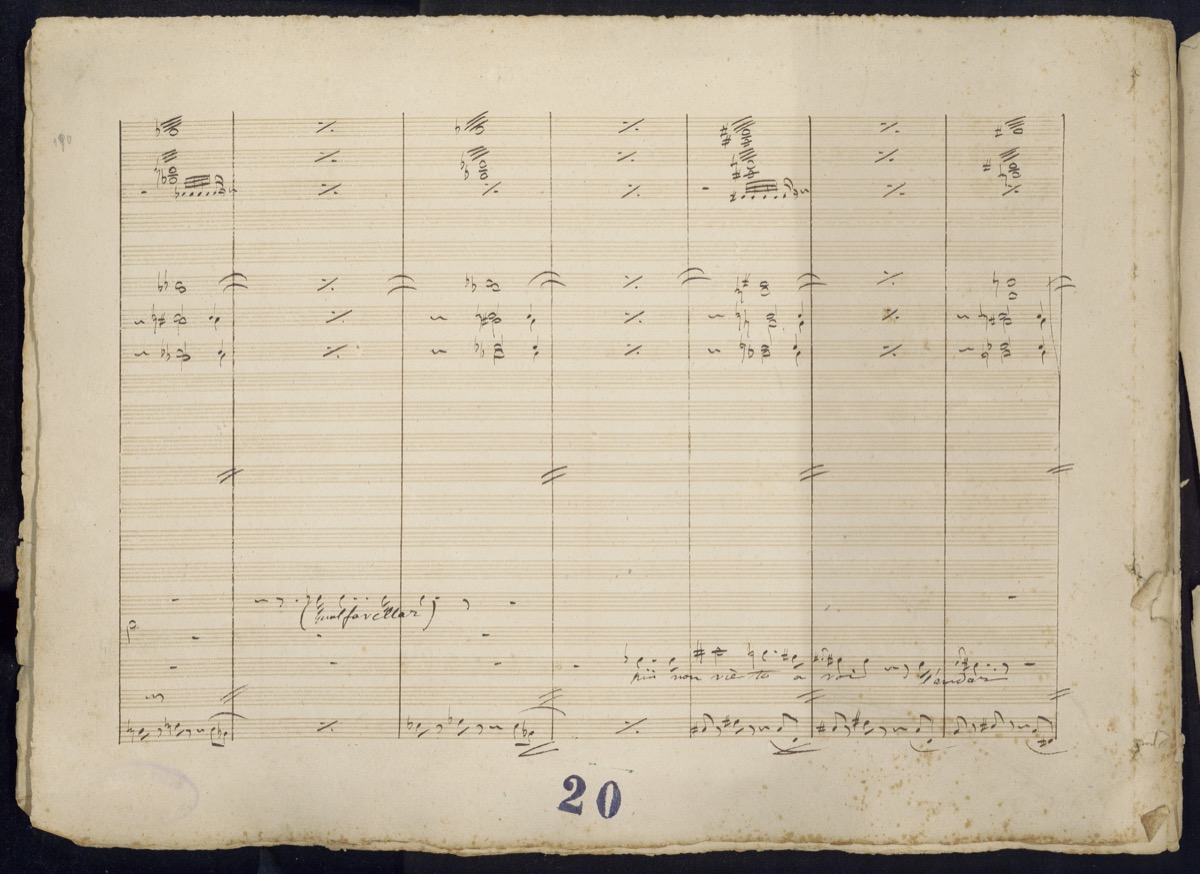 190
(qual favellar)
più non vieta a voi l'andar
20